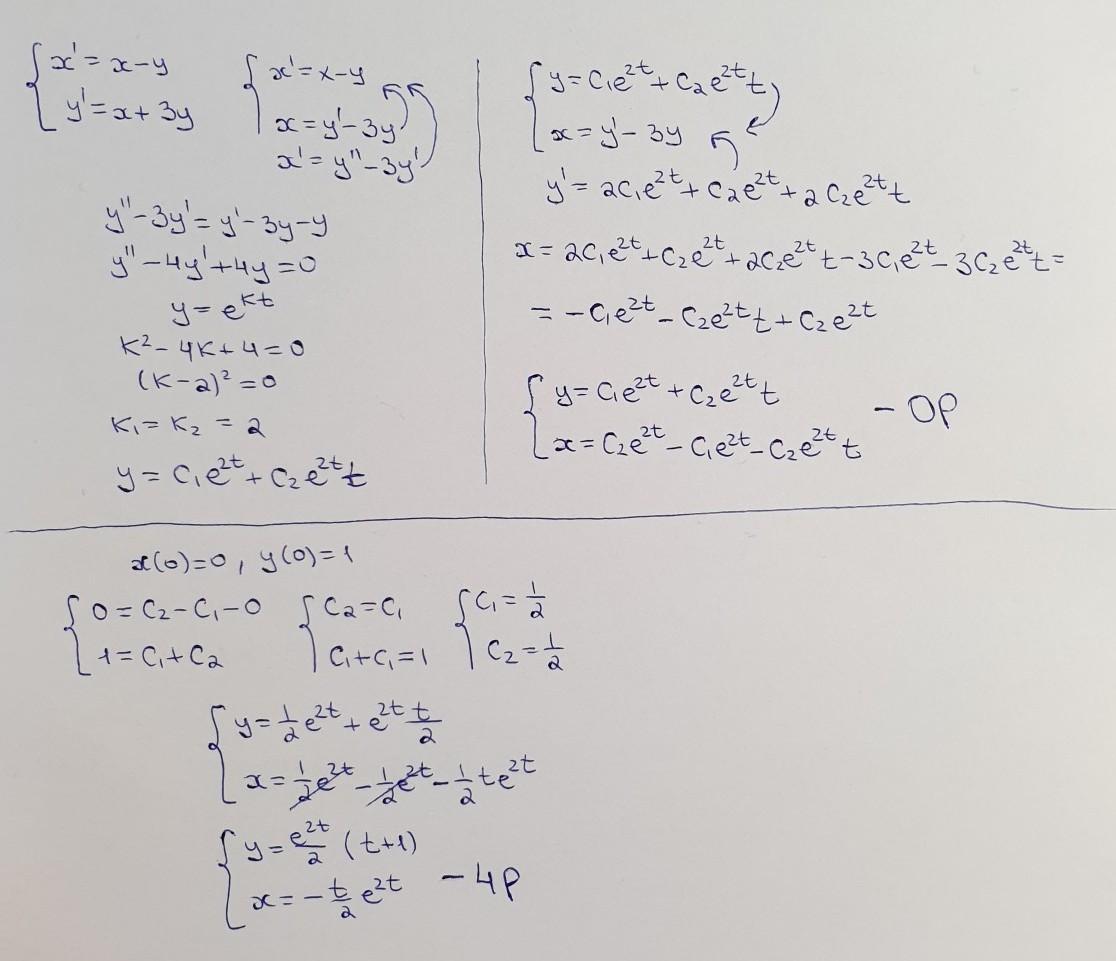 { x' = x - y
y' = x + 3y
{ x' = x - y
x = y' - 3y
x' = y'' - 3y'
y'' - 3y' = y' - 3y - y
y'' - 4y' + 4y = 0
y = e^{kt}
k² - 4k + 4 = 0
(k - 2)² = 0
k₁ = k₂ = 2
y = C₁e^{2t} + C₂e^{2t}t
{ y = C₁e^{2t} + C₂e^{2t}t
x = y' - 3y
y' = 2C₁e^{2t} + C₂e^{2t} + 2C₂e^{2t}t
x = 2C₁e^{2t} + C₂e^{2t} + 2C₂e^{2t}t - 3C₁e^{2t} - 3C₂e^{2t}t =
= -C₁e^{2t} - C₂e^{2t}t + C₂e^{2t}
{ y = C₁e^{2t} + C₂e^{2t}t
x = C₂e^{2t} - C₁e^{2t} - C₂e^{2t}t
- ОР
x(0) = 0, y(0) = 1
{ 0 = C₂ - C₁ - 0
1 = C₁ + C₂
{ C₂ = C₁
C₁ + C₁ = 1
{ C₁ = 1/2
C₂ = 1/2
{ y = 1/2 e^{2t} + e^{2t} t/2
x = 1/2 e^{2t} - 1/2 e^{2t} - 1/2 te^{2t}
{ y = e^{2t}/2 (t + 1)
x = -t/2 e^{2t}
- ЧР